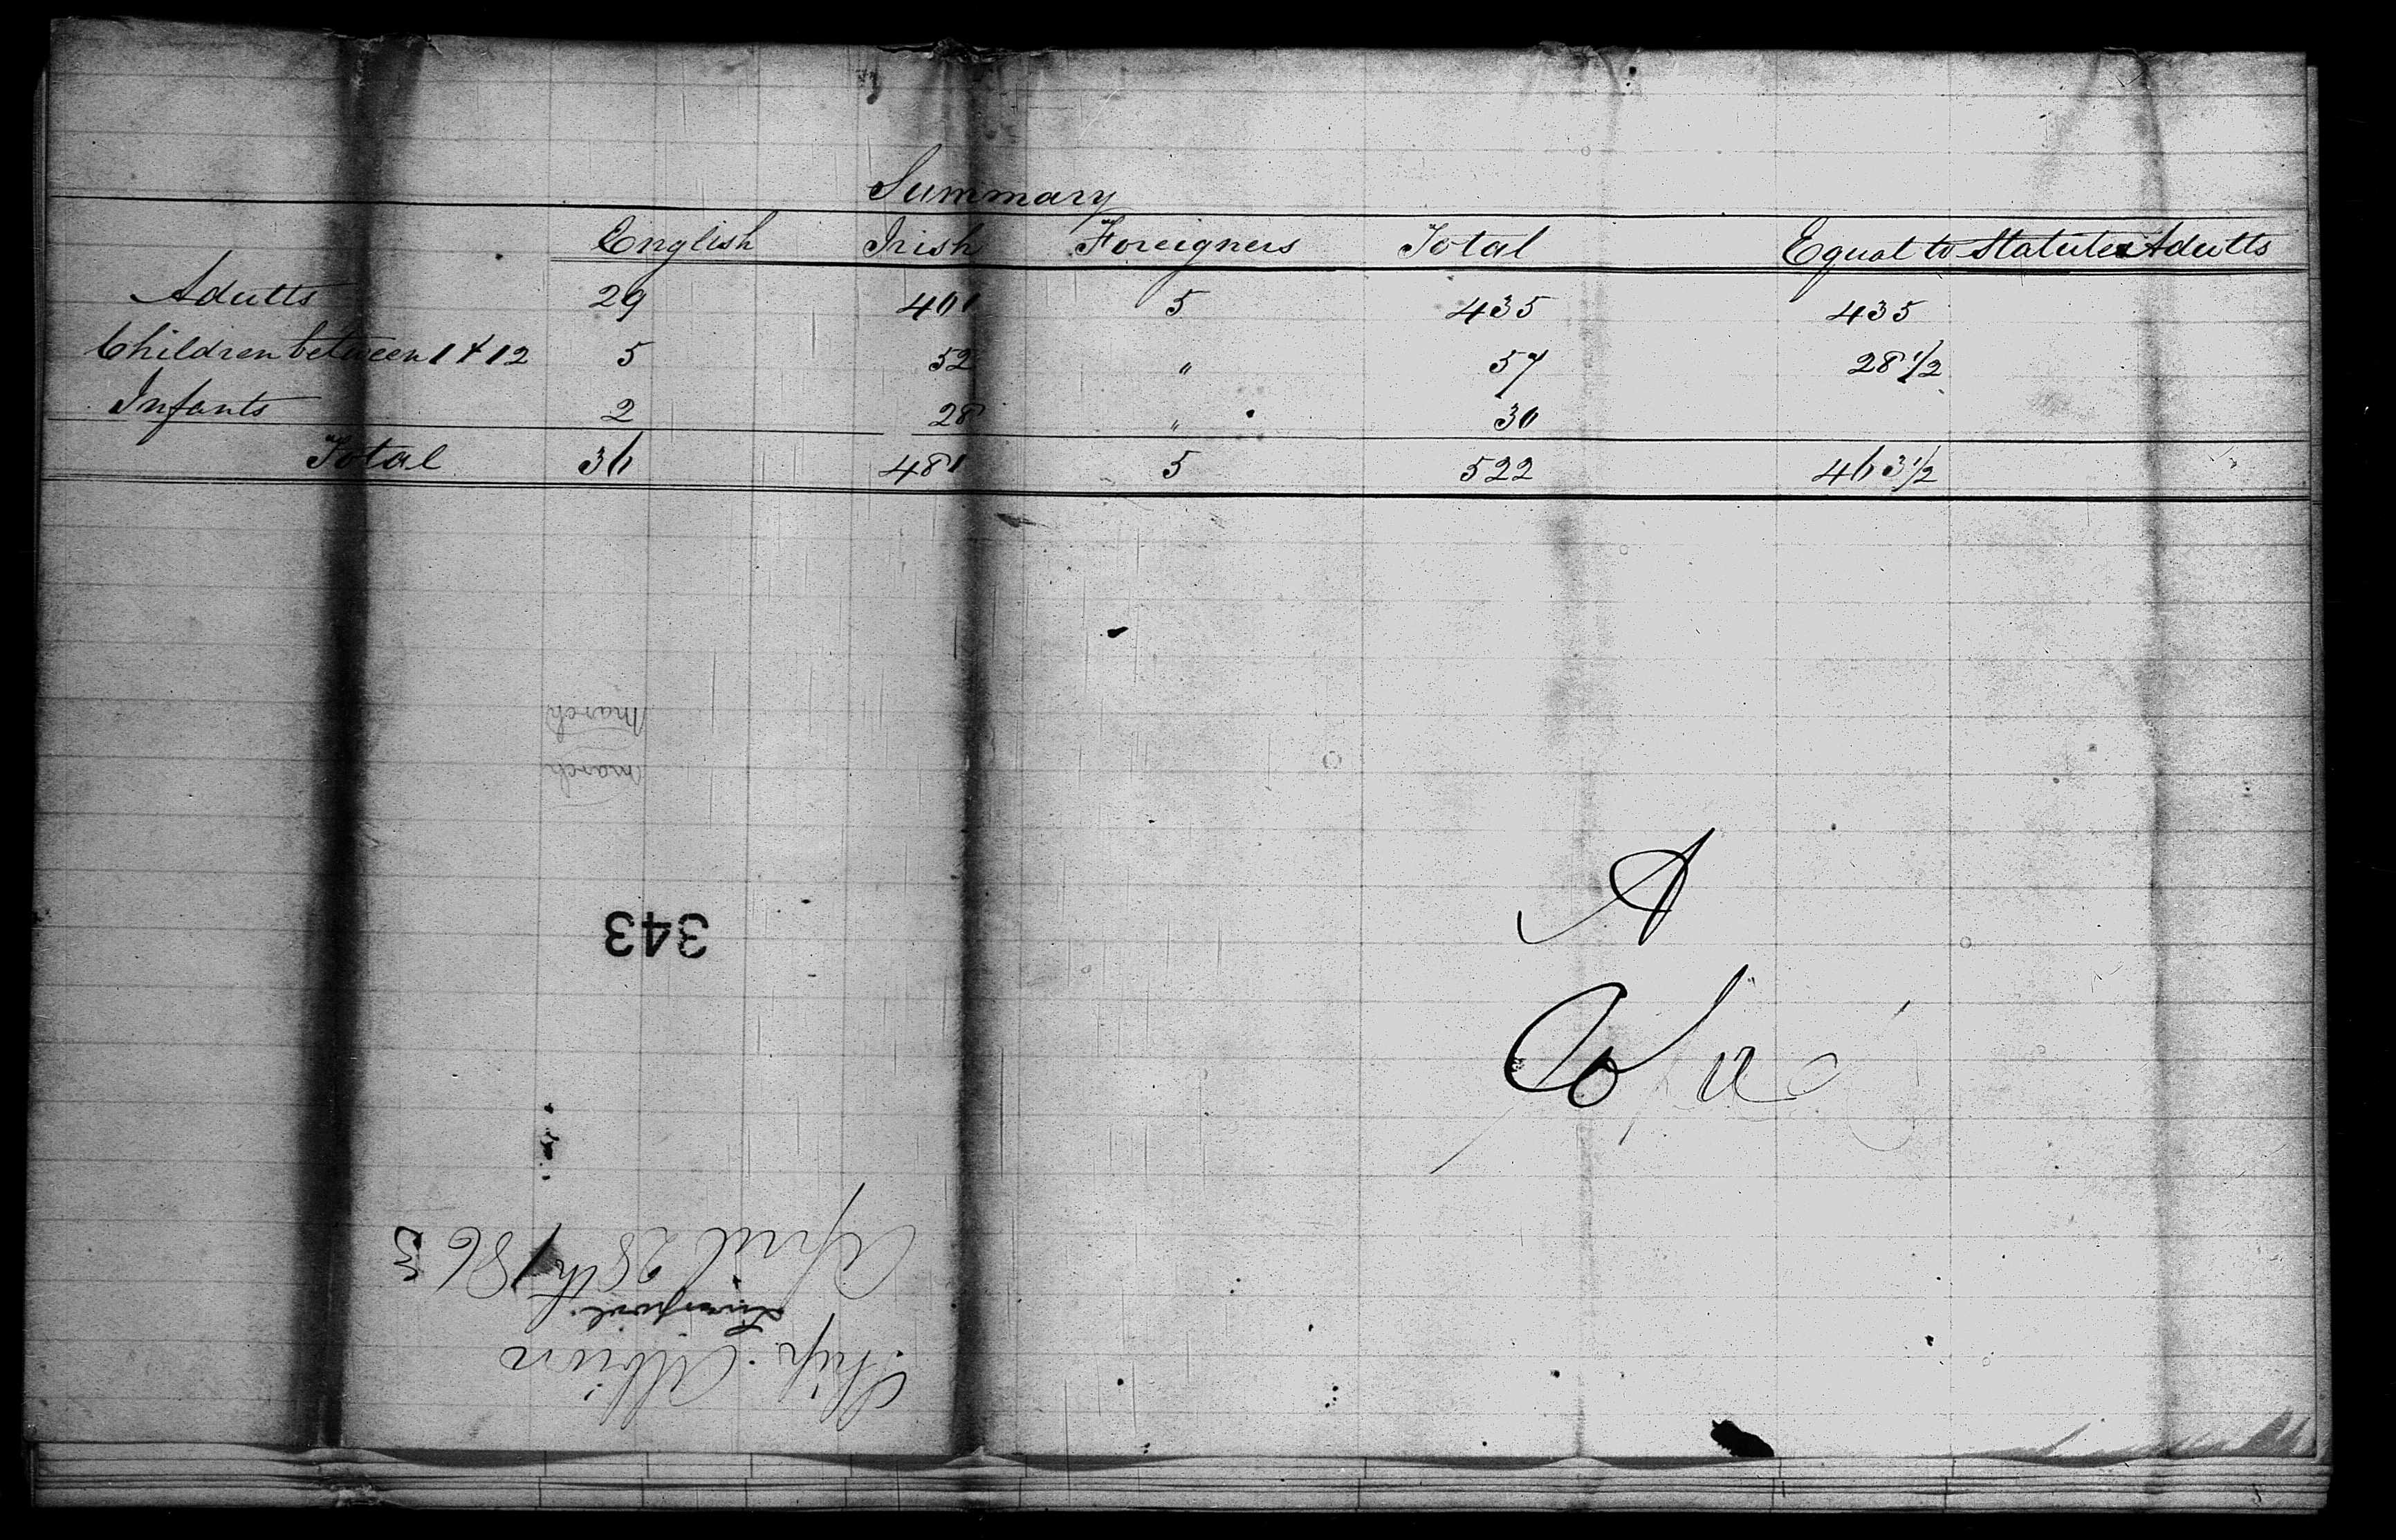 Summary
English Irish Foreigners Total Equal to Statute Adults
Adults 29 401 5 435 435
Children between 1 & 12 5 52 " 57 28 1/2
Infants 2 28 " 30
Total 36 481 5 522 463 1/2
March
March
343
A
April 28th 1863
Liverpool.
Ship. Albion